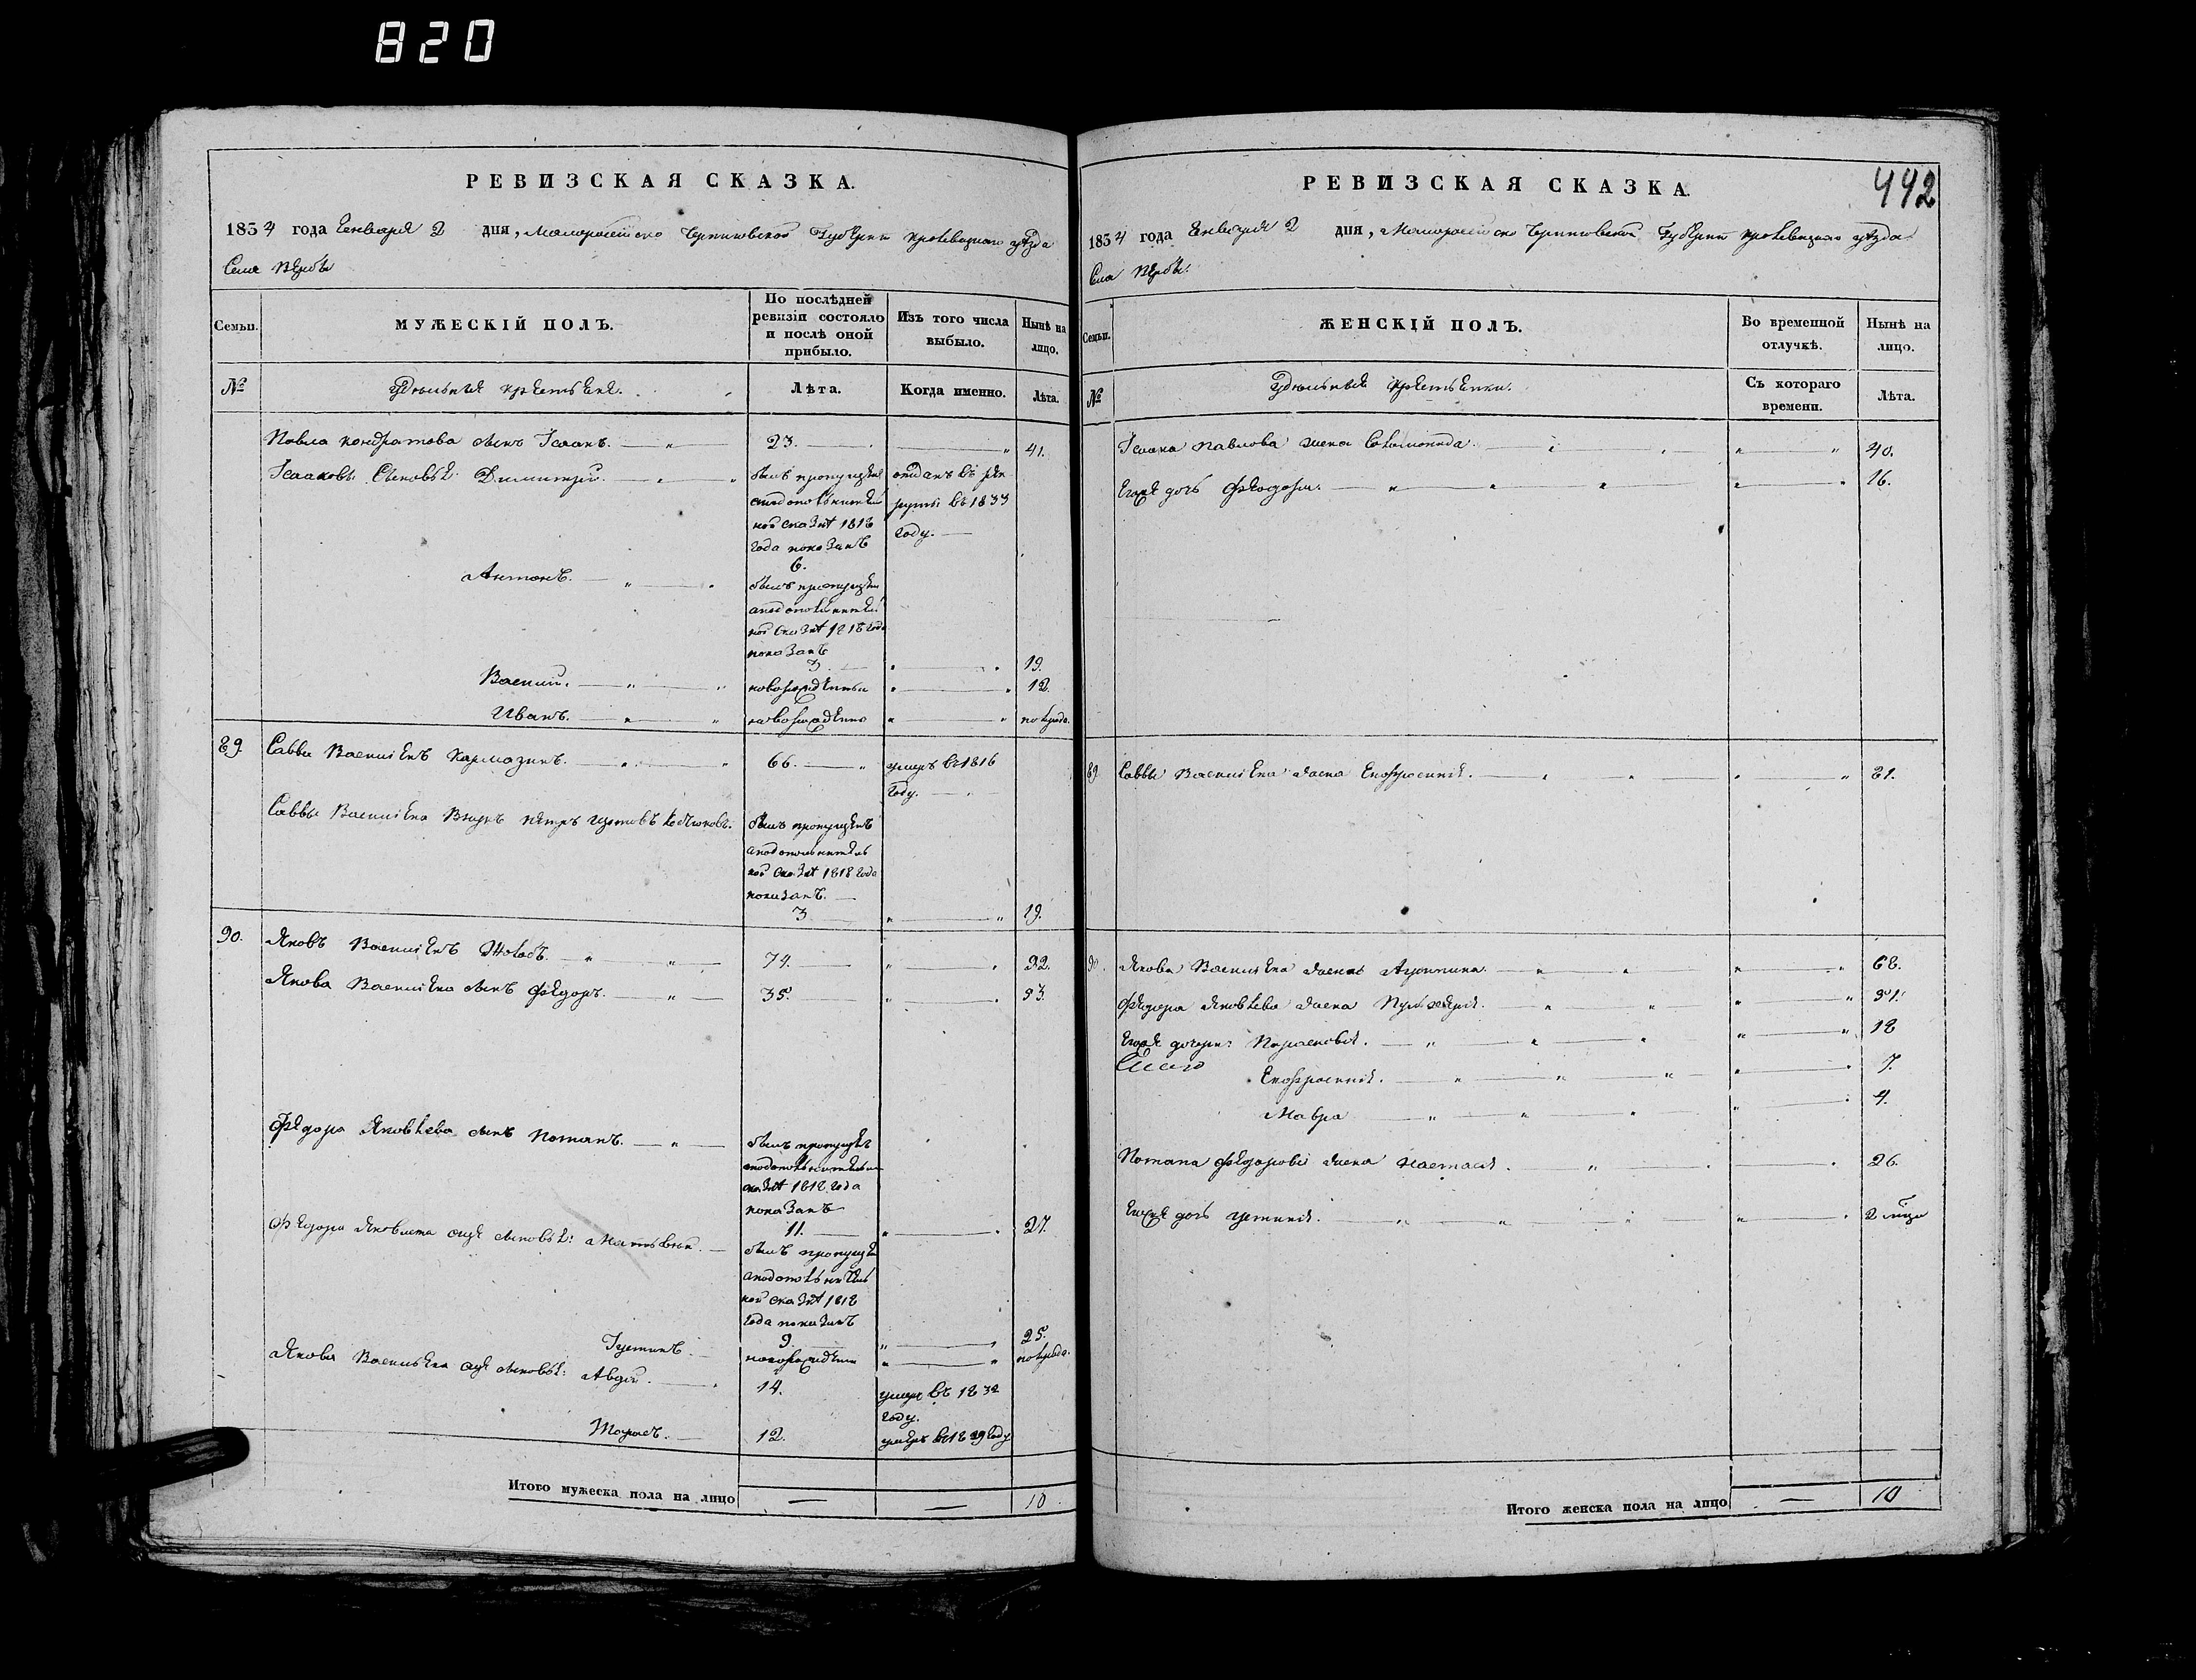 820
РЕВИЗСКАЯ СКАЗКА.
1834 года Генваря 2 дня, Малороссійско Черниговской Губерніи Кролевецкаго уѣзда
Села Вербы
Семьи.
МУЖЕСКІЙ ПОЛЪ.
По послѣдней ревизіи состояло и послѣ оной прибыло.
Изъ того числа выбыло.
Нынѣ на лицо.
№
Удѣльныя крестьяне.
Лѣта.
Когда именно.
Лѣта.
Павла Кондратова сынъ Ісаакъ. 23. 41.
Ісааковы сыновья: Димитрій. былъ пропущенъ а по дополнительной сказкѣ 1818 года показанъ 6. отданъ въ рекруты въ 1833 году.
Антонъ. былъ пропущенъ а по дополнительной сказкѣ 1818 года показанъ 3. 19.
Василій. новорожденный 12.
Иванъ. новорожденно полгода.
89. Савва Васильевъ Кармазинъ. 66. умеръ въ 1816 году.
Саввы Васильева внукъ Петръ былъ пропущенъ а по дополнительной сказкѣ 1818 года показанъ. 3 19.
90. Яковъ Васильевъ 74. 92.
Якова Васильева сынъ Федоръ. 35. 53.
Федора Яковлева сынъ Потапъ. былъ пропущенъ а по дополнительной сказкѣ 1818 года показанъ 11. 27.
Федора Яковлева еще сыновья: Матвѣй. былъ пропущенъ а по дополнительной сказкѣ 1818 года показанъ 9. 25.
Іустинъ. новорожденный полгода.
Якова Васильева еще сыновья: Авдій. 14. умеръ въ 1832 году.
Тарасъ. 12. умеръ въ 1829 году
Итого мужеска пола на лицо — — 10.
442
РЕВИЗСКАЯ СКАЗКА.
1834 года Генваря 2 дня, Малороссійско Черниговской Губерніи Кролевецкаго уѣзда
Села Вербы.
Семьи.
ЖЕНСКІЙ ПОЛЪ.
Во временной отлучкѣ.
Нынѣ на лицо.
№
Удѣльныя крестьянки.
Съ котораго времени.
Лѣта.
Ісаака Павлова жена Соломонида. 40.
Егоже дочь Феодосія. 16.
89. Саввы Васильева жена Евфросинія. 81.
90. Якова Васильева жена 68.
Федора Яковлева жена Пульхерія. 51.
Егоже дочери: Парасковія. 18
Евфросинія. 7.
Мавра 4.
Потапа Федорова жена Настасія. 26.
Егоже дочь Устинія. 2 мѣсяца
Итого женска пола на лицо — 10